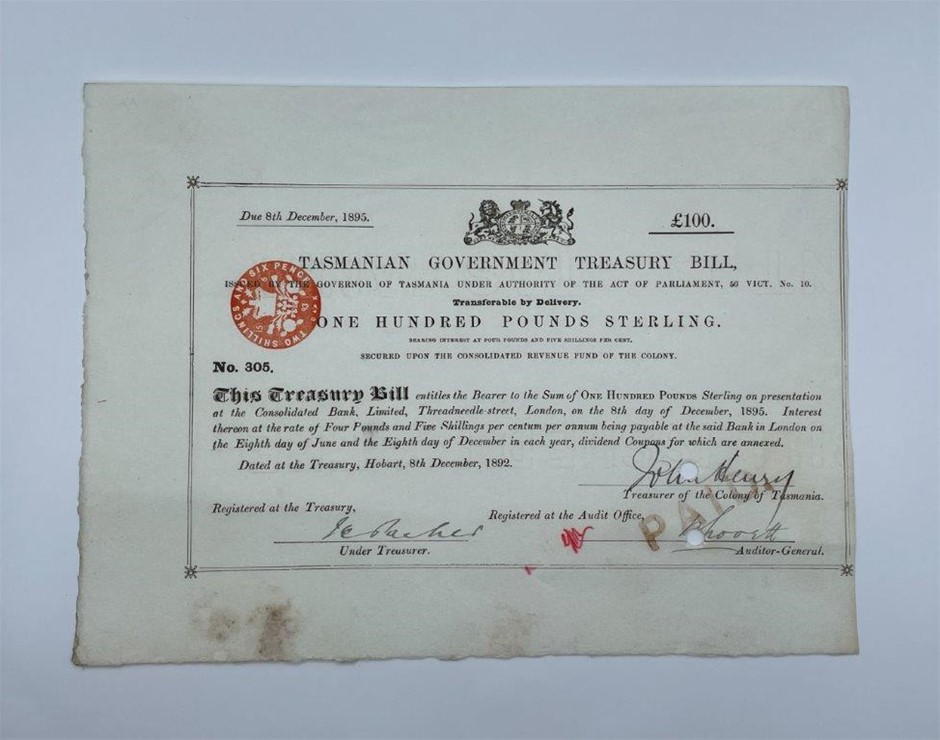 Due 8th December, 1895.
£100.
TASMANIAN GOVERNMENT TREASURY BILL,
ISSUED BY THE GOVERNOR OF TASMANIA UNDER AUTHORITY OF THE ACT OF PARLIAMENT, 56 VICT. No. 10.
Transferable by Delivery.
TWO SHILLINGS AND SIX PENCE
ONE HUNDRED POUNDS STERLING.
BEARING INTEREST AT FOUR POUNDS AND FIVE SHILLINGS PER CENT.
SECURED UPON THE CONSOLIDATED REVENUE FUND OF THE COLONY.
No. 305.
This Treasury Bill entitles the Bearer to the Sum of ONE HUNDRED POUNDS Sterling on presentation
at the Consolidated Bank, Limited, Threadneedle-street, London, on the 8th day of December, 1895. Interest
thereon at the rate of Four Pounds and Five Shillings per centum per annum being payable at the said Bank in London on
the Eighth day of June and the Eighth day of December in each year, dividend Coupons for which are annexed.
Dated at the Treasury, Hobart, 8th December, 1892.
John Henry
Treasurer of the Colony of Tasmania.
Registered at the Treasury,
Registered at the Audit Office,
PAID
Under Treasurer.
Auditor-General.